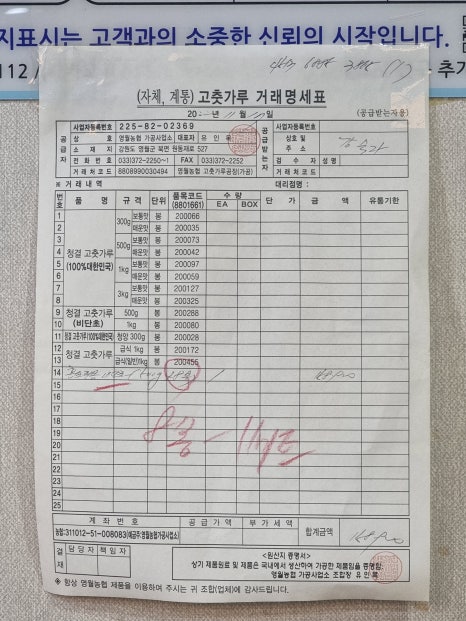 지표시는 고객과의 소중한 신뢰의 시작입니다.
112 /
추가
(자체, 계통) 고춧가루 거래명세표
20 년 11월 일 (공급받는자용)
공급자
사업자등록번호 225-82-02369
상 호 영월농협 가공사업소 대표자 유 인 목
소 재 지 강원도 영월군 북면 원동재로 527
전 화 번 호 033)372-2250~1 FAX 033)372-2252
거 래 처 코 드 8808990030494 영월농협 고춧가루공장(가공)
공급받는자
사업자등록번호
상호 및 주 소
검 수 자 성명
거 래 처 코 드
※ 거 래 내 역 대리점명 :
번호 품 명 규 격 단위 품목코드 (8801661) 수 량 EA BOX 단 가 금 액 유통기한
청결 고춧가루 (100%대한민국)
1 300g 보통맛 봉 200066
2 매운맛 봉 200035
3 500g 보통맛 봉 200073
4 매운맛 봉 200042
5 1kg 보통맛 봉 200097
6 매운맛 봉 200059
7 3kg 보통맛 봉 200127
8 매운맛 봉 200325
9 청결 고춧가루 (비단초) 500g 봉 200288
10 1kg 봉 200080
11 청결 고춧가루(100%대한민국) 청양 300g 봉 200028
12 청결 고춧가루 급식 1kg 봉 200172
13 급식(일반)1kg 봉 200456
14
15
16
17
18
19
20
21
22
23
24
25
계 좌 번 호 공 급 가 액 부 가 세 액 합계금액
농협:311012-51-008083(예금주:영월농협가공사업소)
결재 담 당 자 책 임 자
<원산지 증명서>
상기 제품원료 및 제품은 국내에서 생산하여 가공한 제품임을 증명함.
영월농협 가공사업소 조합장 유 인 목
※ 항상 영월농협 제품을 이용하여 주시는 귀 조합(업체)에 감사드립니다.